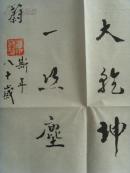 大乾坤
一点塵
斯年
八十歲
蔚